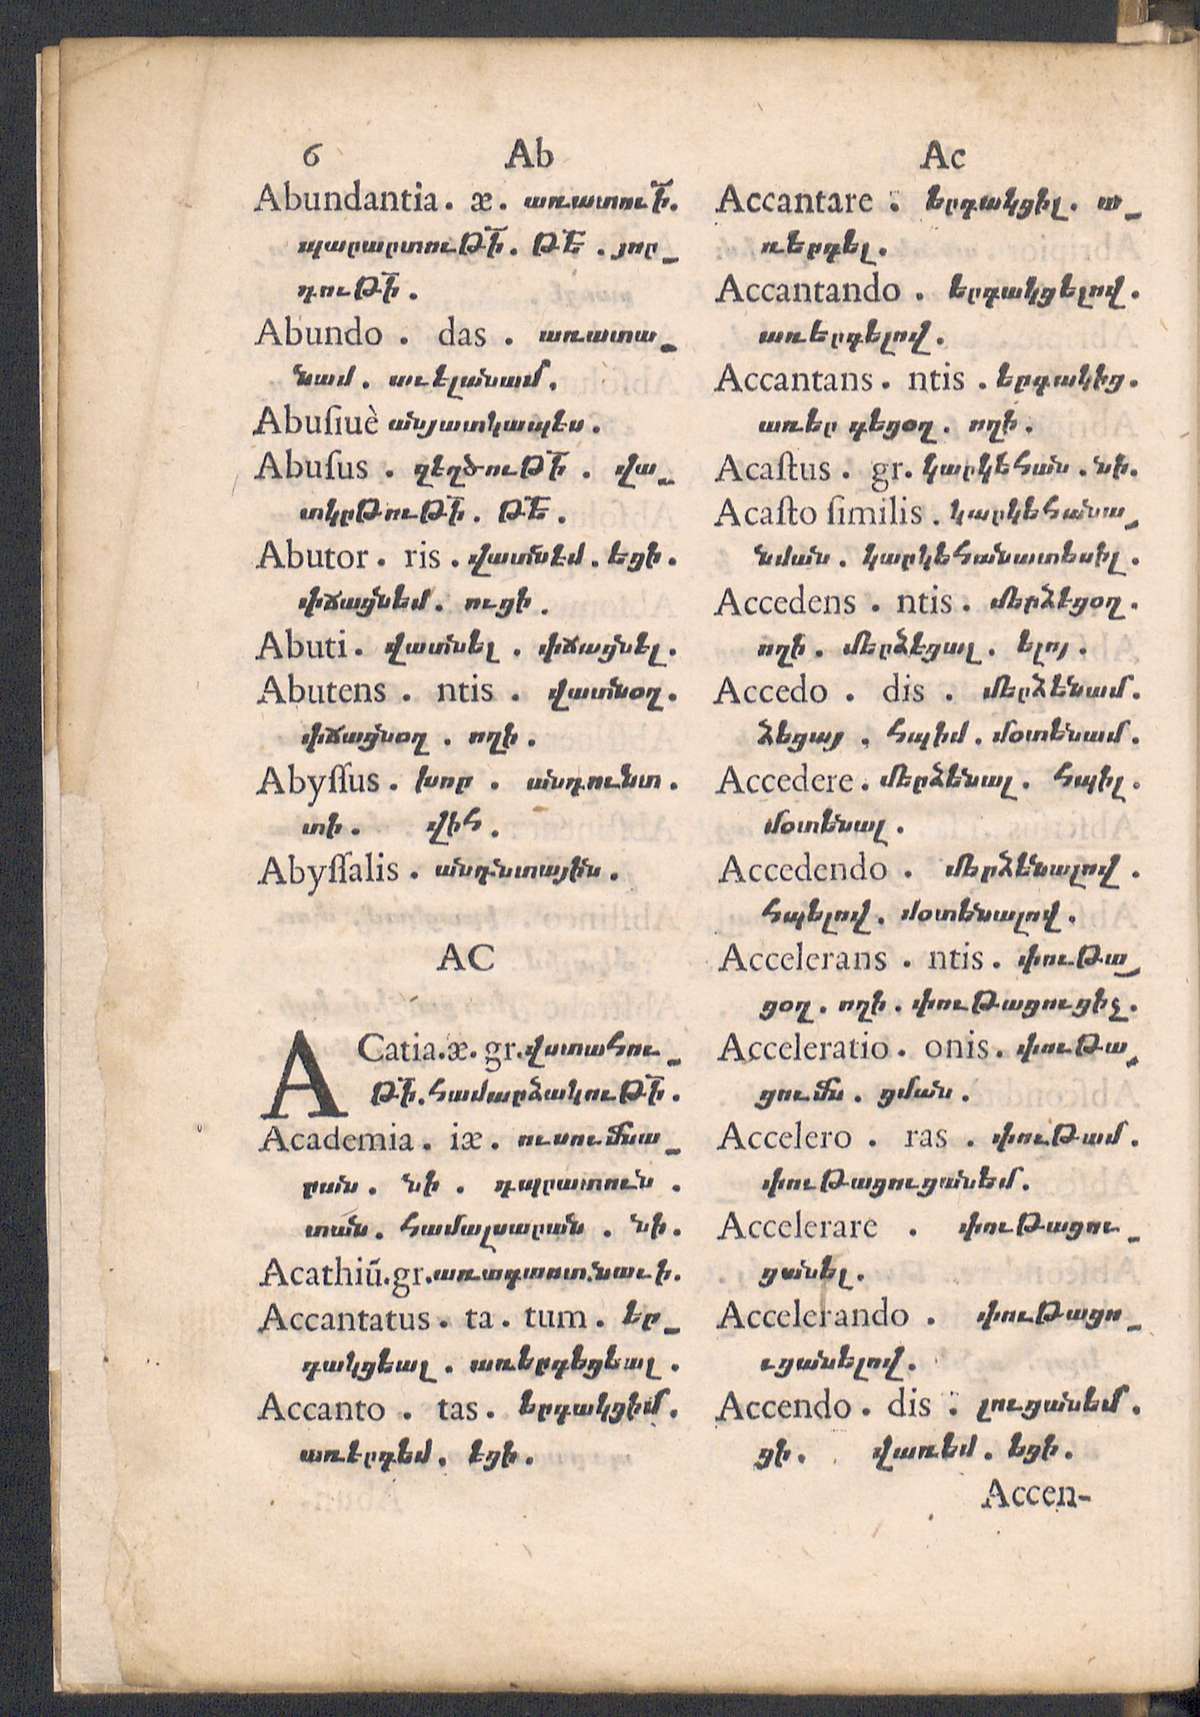 6 Ab
Abundantia. æ. առատուի՟.
պարարտուԹի՟. ԹԵ՟. յոր֊
դուԹի՟.
Abundo. das. առատա֊
նամ. աւելանամ.
Abusiuè անյատկապէս.
Abuſus. զեղծուԹի՟. վա֊
տկրԹուԹի՟. ԹԵ՟.
Abutor. ris. վատնեմ. եցի.
փճացնեմ. ուցի.
Abuti. վատնել. փճացնել.
Abutens. ntis. վատնօղ.
փճացնօղ. ողի.
Abyſſus. խոր. անդունտ.
տի. վիհ.
Abyſſalis. անդնտային.
AC
ACatia. æ. gr. վստահու֊
Թի՟. համարձակուԹի՟.
Academia. iæ. ուսումնա֊
րան. նի. դպրատուն.
տան. համալսարան. նի.
Acathiū. gr. առագաստ.նաւի.
Accantatus. ta. tum. եր֊
դակցեալ. առերգեցեալ.
Accanto. tas. երգակցիմ.
առէրգեմ. էցի.
Ac
Accantare. երգակցիլ. ա֊
ռերգել.
Accantando. երգակցելով.
առերգելով.
Accantans. ntis. երգակից.
առեր գեցօղ. ողի.
Acaſtus. gr. կարկեհան. նի.
Acaſto ſimilis. կարկեհանա֊
նման. կարկեհանատեսիլ.
Accedens. ntis. մերձէցօղ.
ողի. մերձէցալ. ելոյ.
Accedo. dis. մերձենամ.
ձեցայ. հպիմ. մօտենամ.
Accedere. մերձենալ. հպիլ.
մօտենալ.
Accedendo. մերձենալով.
հպելով. մօտենալով.
Accelerans. ntis. փուԹա֊
ցօղ. ողի. փուԹացուցիչ.
Acceleratio. onis. փուԹա֊
ցումն. ցման.
Accelero. ras. փուԹամ.
փուԹացուցանեմ.
Accelerare. փուԹացու֊
ցանել.
Accelerando. փուԹացո֊
ւցանելով.
Accendo. dis. լուցանեմ.
ցի. վառեմ. եցի.
Accen-